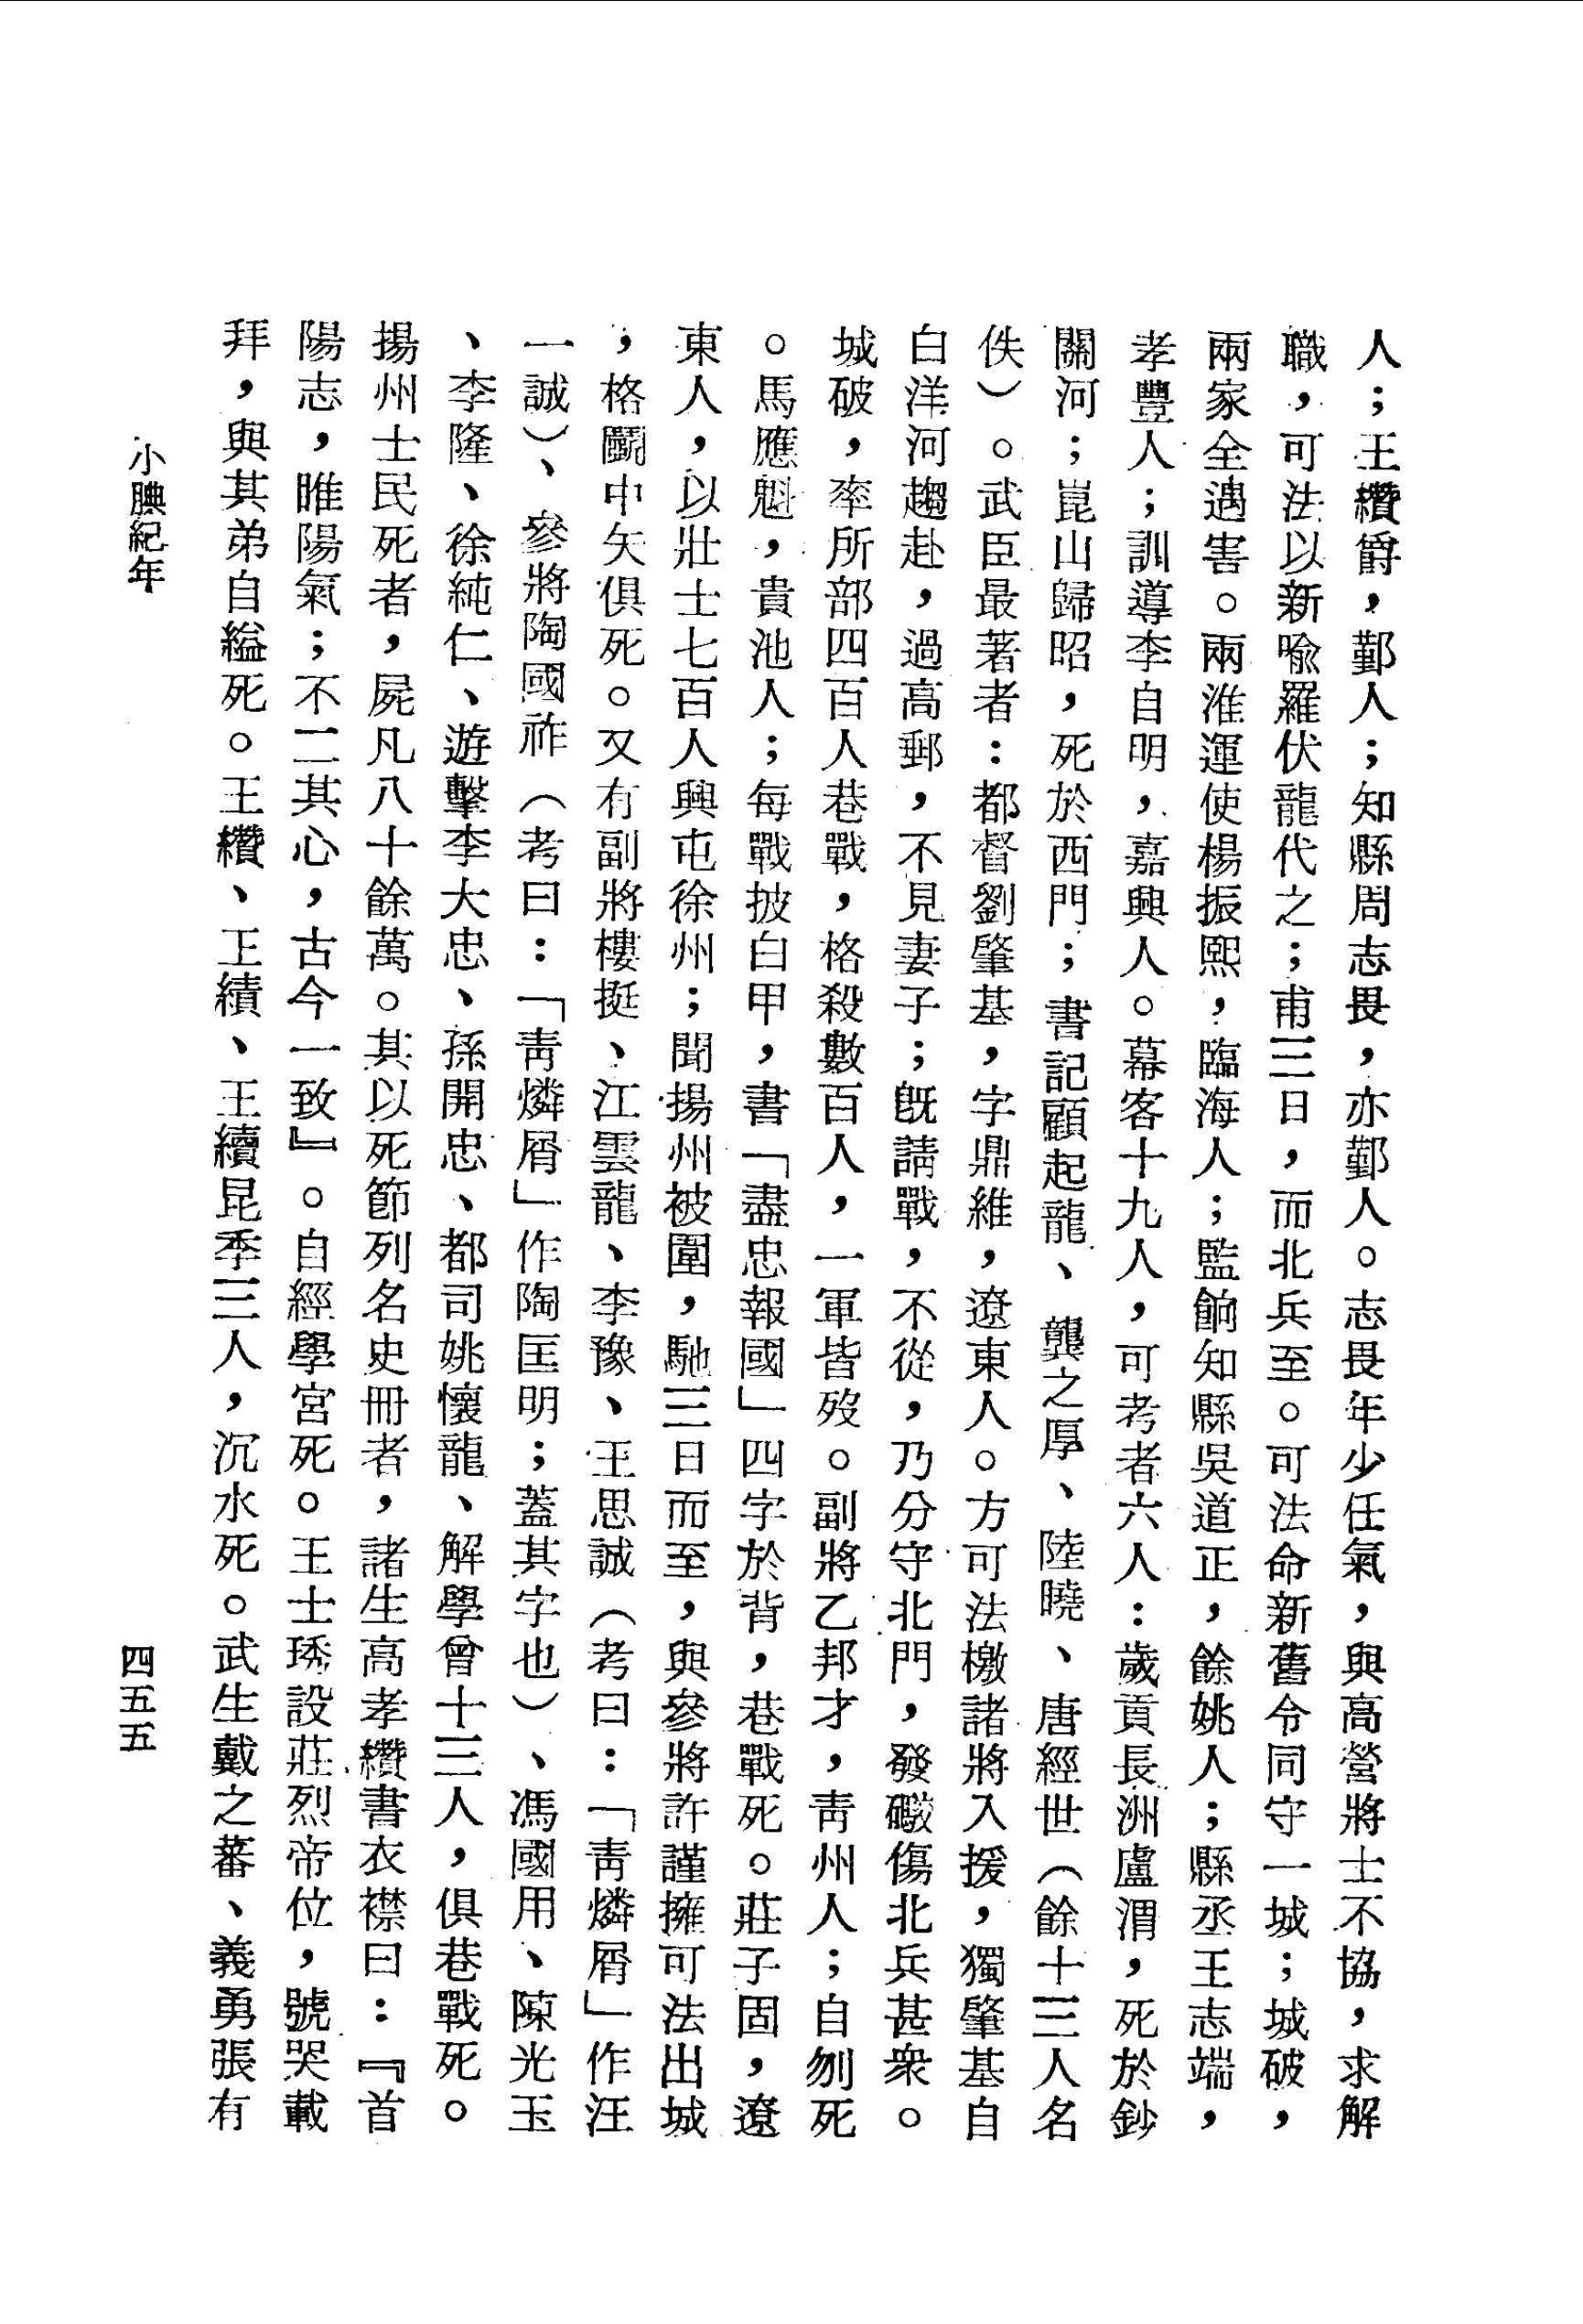 人；王纘爵，鄞人；知縣周志畏，亦鄞人。志畏年少任氣，與高營將士不協，求解
職，可法以新喩羅伏龍代之；甫三日，而北兵至。可法命新舊令同守一城；城破，
兩家全遇害。兩淮運使楊振熙，臨海人；監餉知縣吳道正，餘姚人；縣丞王志端，
孝豐人；訓導李自明，嘉興人。幕客十九人，可考者六人：歲貢長洲盧渭，死於鈔
關河；崑山歸昭，死於西門；書記顧起龍、龔之厚、陸曉、唐經世（餘十三人名
佚）。武臣最著者：都督劉肇基，字鼎維，遼東人。方可法檄諸將入援，獨肇基自
白洋河趨赴，過高郵，不見妻子；旣請戰，不從，乃分守北門，發礮傷北兵甚衆。
城破，率所部四百人巷戰，格殺數百人，一軍皆歿。副將乙邦才，靑州人；自刎死
。馬應魁，貴池人；每戰披白甲，書「盡忠報國」四字於背，巷戰死。莊子固，遼
東人，以壯士七百人興屯徐州；聞揚州被圍，馳三日而至，與參將許謹擁可法出城
，格鬭中矢俱死。又有副將樓挺、江雲龍、李豫、王思誠（考曰：「靑燐屑」作汪
一誠）、參將陶國祚（考曰：「靑燐屑」作陶匡明；蓋其字也）、馮國用、陳光玉
、李隆、徐純仁、遊擊李大忠、孫開忠、都司姚懷龍、解學曾十三人，俱巷戰死。
揚州士民死者，屍凡八十餘萬。其以死節列名史冊者，諸生高孝纘書衣襟曰：『首
陽志，睢陽氣；不二其心，古今一致』。自經學宮死。王士琇設莊烈帝位，號哭載
拜，與其弟自縊死。王纘、王績、王續昆季三人，沉水死。武生戴之蕃、義勇張有
小腆紀年
四五五